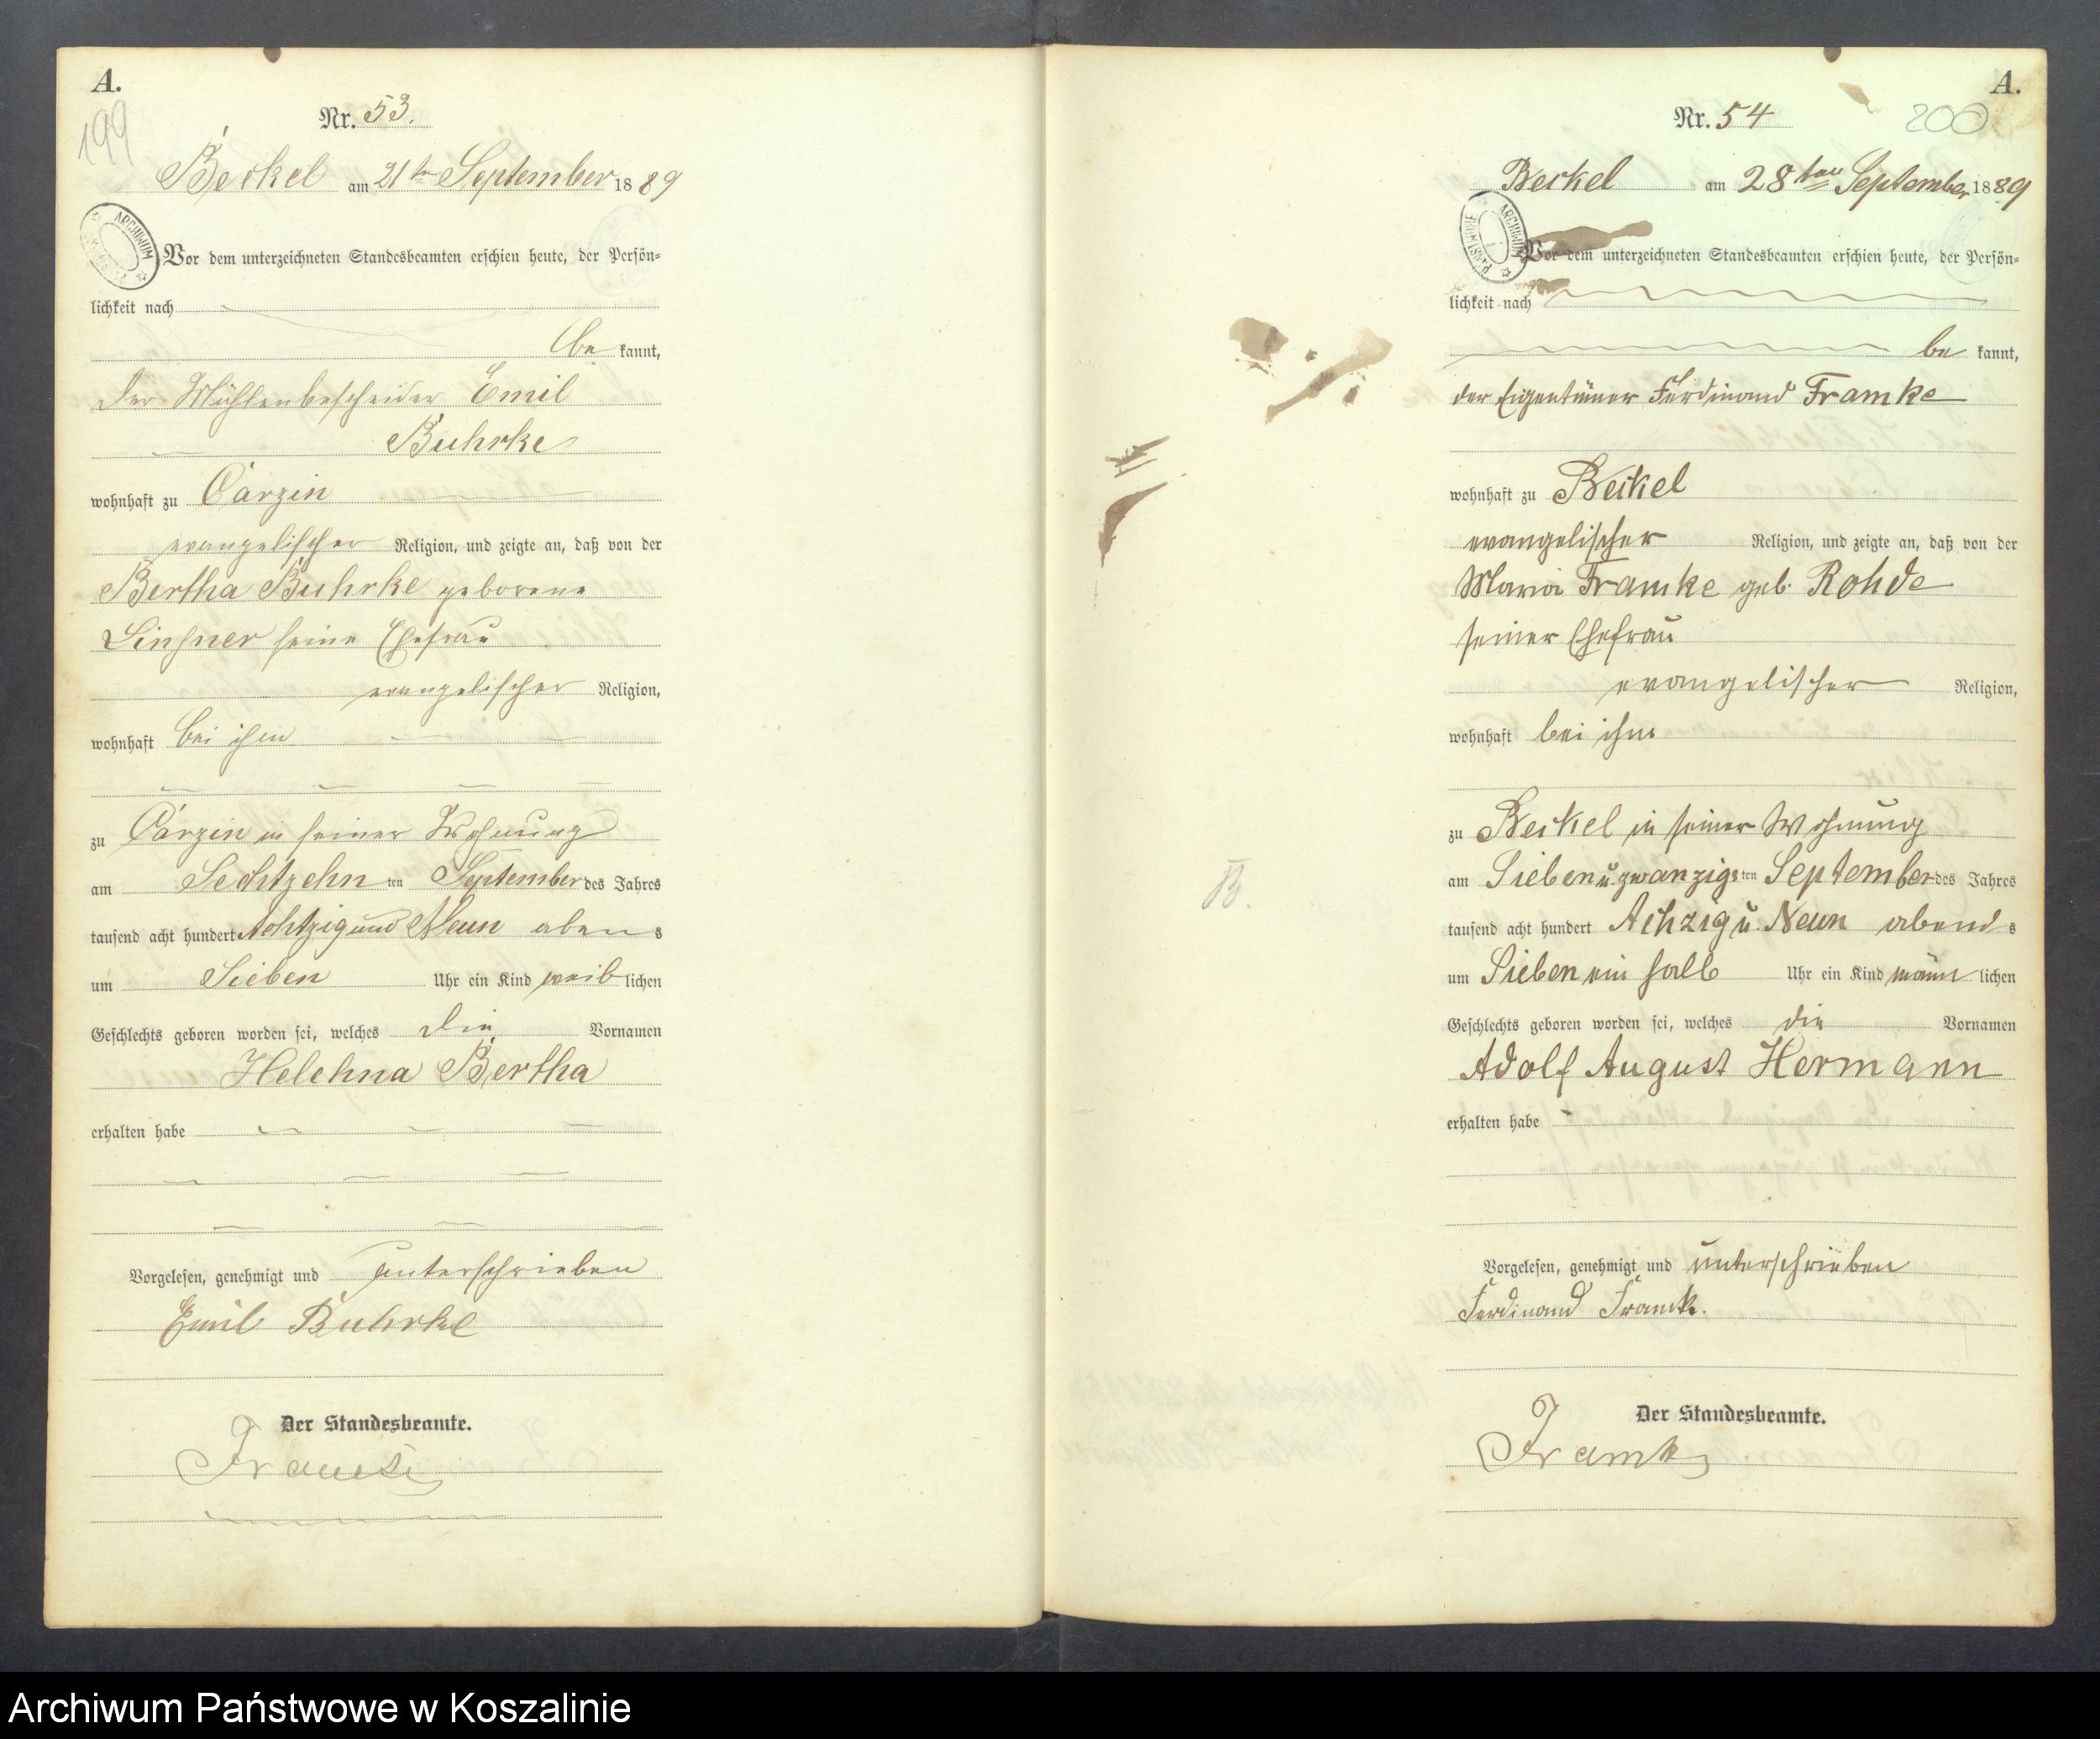 A.
199
Nr. 53.
Beckel am 21ten September 1889
ARCHIWUM
Vor dem unterzeichneten Standesbeamten erschien heute, der Persön=
lichkeit nach
be kannt,
der Mühlenbescheider Emil
Buhrke
wohnhaft zu Carzin
evangelischer Religion, und zeigte an, daß von der
Bertha Buhrke geborene
seine Ehefrau
evangelischer Religion,
wohnhaft bei ihm
zu Carzin in seiner Wohnung
am Sechtzehn ten September des Jahres
tausend acht hundert Achtzig und Neun abens
um Sieben Uhr ein Kind weib lichen
Geschlechts geboren worden sei, welches die Vornamen
Helehna Bertha
erhalten habe
Vorgelesen, genehmigt und unterschrieben
Emil Buhrke
Der Standesbeamte.
Framke
A.
Nr. 54
200
Beckel am 28ten September 1889
ARCHIWUM PAŃSTWOWE
Vor dem unterzeichneten Standesbeamten erschien heute, der Persön=
lichkeit nach
be kannt,
der Eigentümer Ferdinand Framke
wohnhaft zu Beckel
evangelischer Religion, und zeigte an, daß von der
Maria Framke geb. Rohde
seiner Ehefrau
evangelischer Religion,
wohnhaft bei ihm
zu Beckel in seiner Wohnung
am Sieben u. zwanzigs ten September des Jahres
tausend acht hundert Achzig u. Neun abends
um Sieben ein halb Uhr ein Kind männ lichen
Geschlechts geboren worden sei, welches die Vornamen
Adolf August Hermann
erhalten habe
B.
Vorgelesen, genehmigt und unterschrieben
Ferdinand Framke.
Der Standesbeamte.
Framke
Archiwum Państwowe w Koszalinie